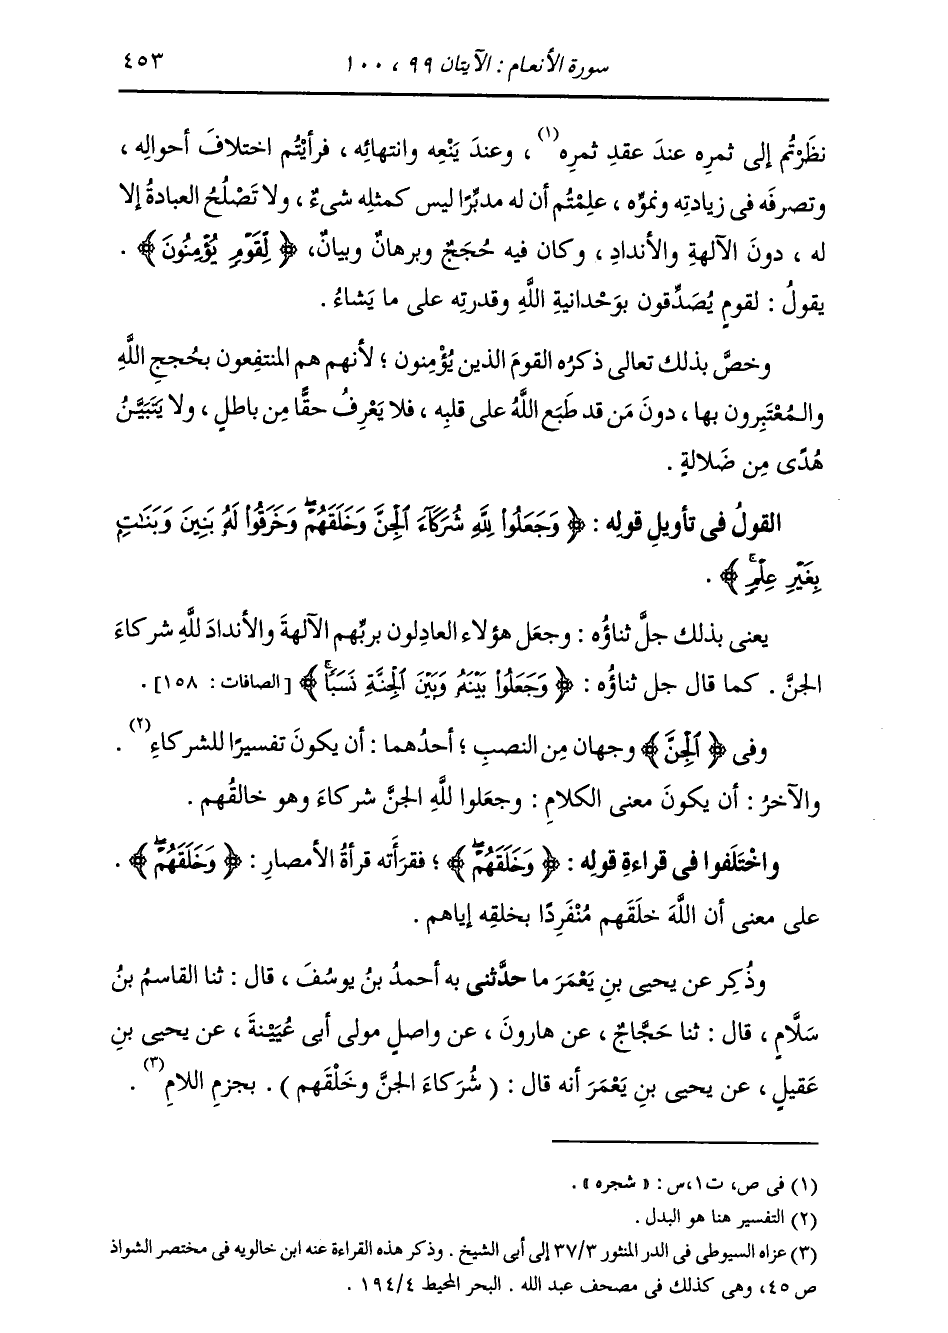 سورة الأنعام : الآيتان ٩٩ ، ١٠٠ ٤٥٣
نظَرْتُم إلى ثمرِه عندَ عقدِ ثمرِه(١) ، وعندَ يَنْعِه وانتهائِه ، فرأيْتُم اختلافَ أحوالِه ،
وتصرفَه فى زيادتِه ونموِّه ، علِمْتُم أن له مدبِّرًا ليس كمثلِه شىءٌ ، ولا تَصْلُحُ العبادةُ إلا
له ، دونَ الآلهةِ والأندادِ ، وكان فيه حُجَجٌ وبرهانٌ وبيانٌ، ﴿ لِّقَوْمٍ يُؤْمِنُونَ ﴾ .
يقولُ : لقومٍ يُصَدِّقون بوَحْدانيةِ اللَّهِ وقدرتِه على ما يَشاءُ .
وخصَّ بذلك تعالى ذكرُه القومَ الذين يُؤْمِنون ؛ لأنهم هم المنتفِعون بحُججِ اللَّهِ
والمُعْتَبِرون بها ، دونَ مَن قد طبَع اللَّهُ على قلبِه ، فلا يَعْرِفُ حقًّا مِن باطلٍ ، ولا يَتَبَيَّنُ
هُدًى مِن ضَلالةٍ .
القولُ فى تأويلِ قولِه : ﴿ وَجَعَلُوا۟ لِلَّهِ شُرَكَآءَ ٱلْجِنَّ وَخَلَقَهُمْۖ وَخَرَقُوا۟ لَهُۥ بَنِينَ وَبَنَٰتٍۭ
بِغَيْرِ عِلْمٍۚ ﴾ .
يعنى بذلك جلَّ ثناؤُه : وجعَل هؤلاء العادِلون بربِّهم الآلهةَ والأندادَ للَّهِ شركاءَ
الجنَّ . كما قال جل ثناؤُه : ﴿ وَجَعَلُوا۟ بَيْنَهُۥ وَبَيْنَ ٱلْجِنَّةِ نَسَبًاۚ ﴾ [الصافات : ١٥٨] .
وفى ﴿ ٱلْجِنَّ ﴾ وجهان مِن النصبِ ؛ أحدُهما : أن يكونَ تفسيرًا للشركاءِ(٢) .
والآخرُ : أن يكونَ معنى الكلامِ : وجعَلوا للَّهِ الجنَّ شركاءَ وهو خالقُهم .
واخْتَلَفوا فى قراءةِ قولِه : ﴿ وَخَلَقَهُمْۖ ﴾ ؛ فقرَأَته قرأةُ الأمصارِ : ﴿ وَخَلَقَهُمْۖ ﴾ .
على معنى أن اللَّهَ خلَقَهم مُنْفَرِدًا بخلقِه إياهم .
وذُكِر عن يحيى بنِ يَعْمَرَ ما حدَّثنى به أحمدُ بنُ يوسُفَ ، قال : ثنا القاسمُ بنُ
سَلَّامٍ ، قال : ثنا حَجَّاجٌ ، عن هارونَ ، عن واصلٍ مولى أبى عُيَيْنةَ ، عن يحيى بنِ
عَقيلٍ ، عن يحيى بنِ يَعْمَرَ أنه قال : ( شُرَكاءَ الجنَّ وخَلْقَهم ) . بجزمِ اللامِ(٣) .
(١) فى ص، ت١،س : « شجره » .
(٢) التفسير هنا هو البدل .
(٣) عزاه السيوطى فى الدر المنثور ٣٧/٣ إلى أبى الشيخ . وذكر هذه القراءة عنه ابن خالويه فى مختصر الشواذ
ص ٤٥، وهى كذلك فى مصحف عبد الله . البحر المحيط ١٩٤/٤ .